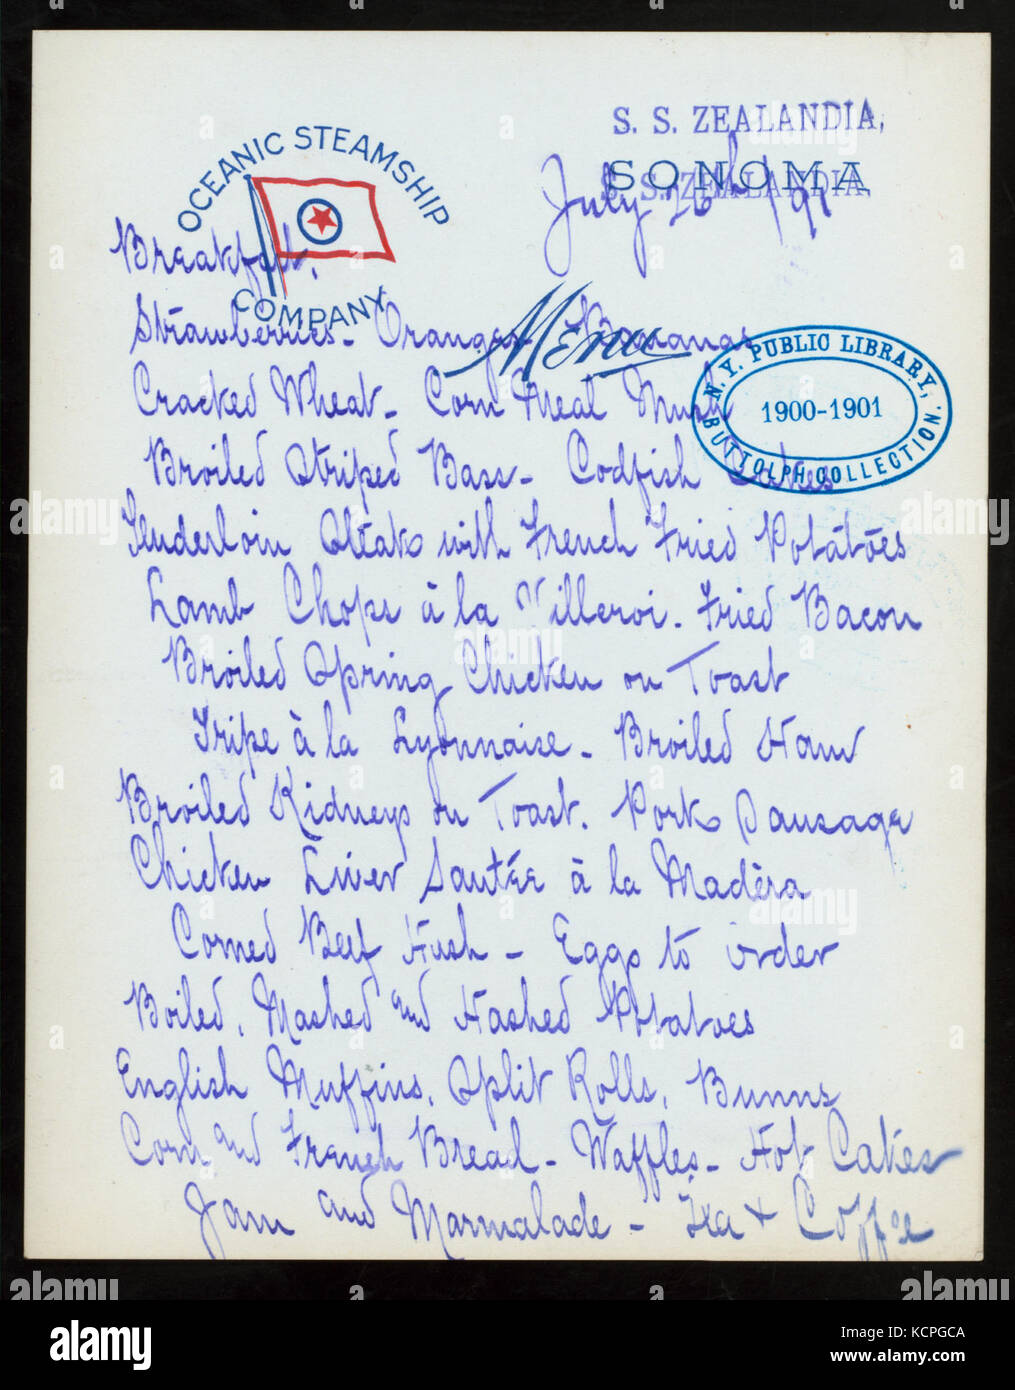 OCEANIC STEAMSHIP
COMPANY
S. S. ZEALANDIA,
SONOMA
S. S. ZEALANDIA,
July 26th /97
Breakfast.
Menu
Strawberries - Oranges - Bananas
N. Y. PUBLIC LIBRARY,
1900-1901
BUTTOLPH COLLECTION.
Cracked Wheat - Corn Meal Mush
Broiled Striped Bass - Codfish Cakes
Tenderloin Steaks with French Fried Potatoes
Lamb Chops à la Villeroi. Fried Bacon
Broiled Spring Chicken on Toast
Tripe à la Lyonnaise - Broiled Ham
Broiled Kidneys on Toast. Pork Sausage
Chicken Liver Sautée à la Madèra
Corned Beef Hash - Eggs to order
Boiled, Mashed and Hashed Potatoes
English Muffins, Split Rolls, Bunns
Corn and French Bread - Waffles - Hot Cakes
Jam and Marmalade - Tea & Coffee
alamy
Image ID: KCPGCA
www.alamy.com